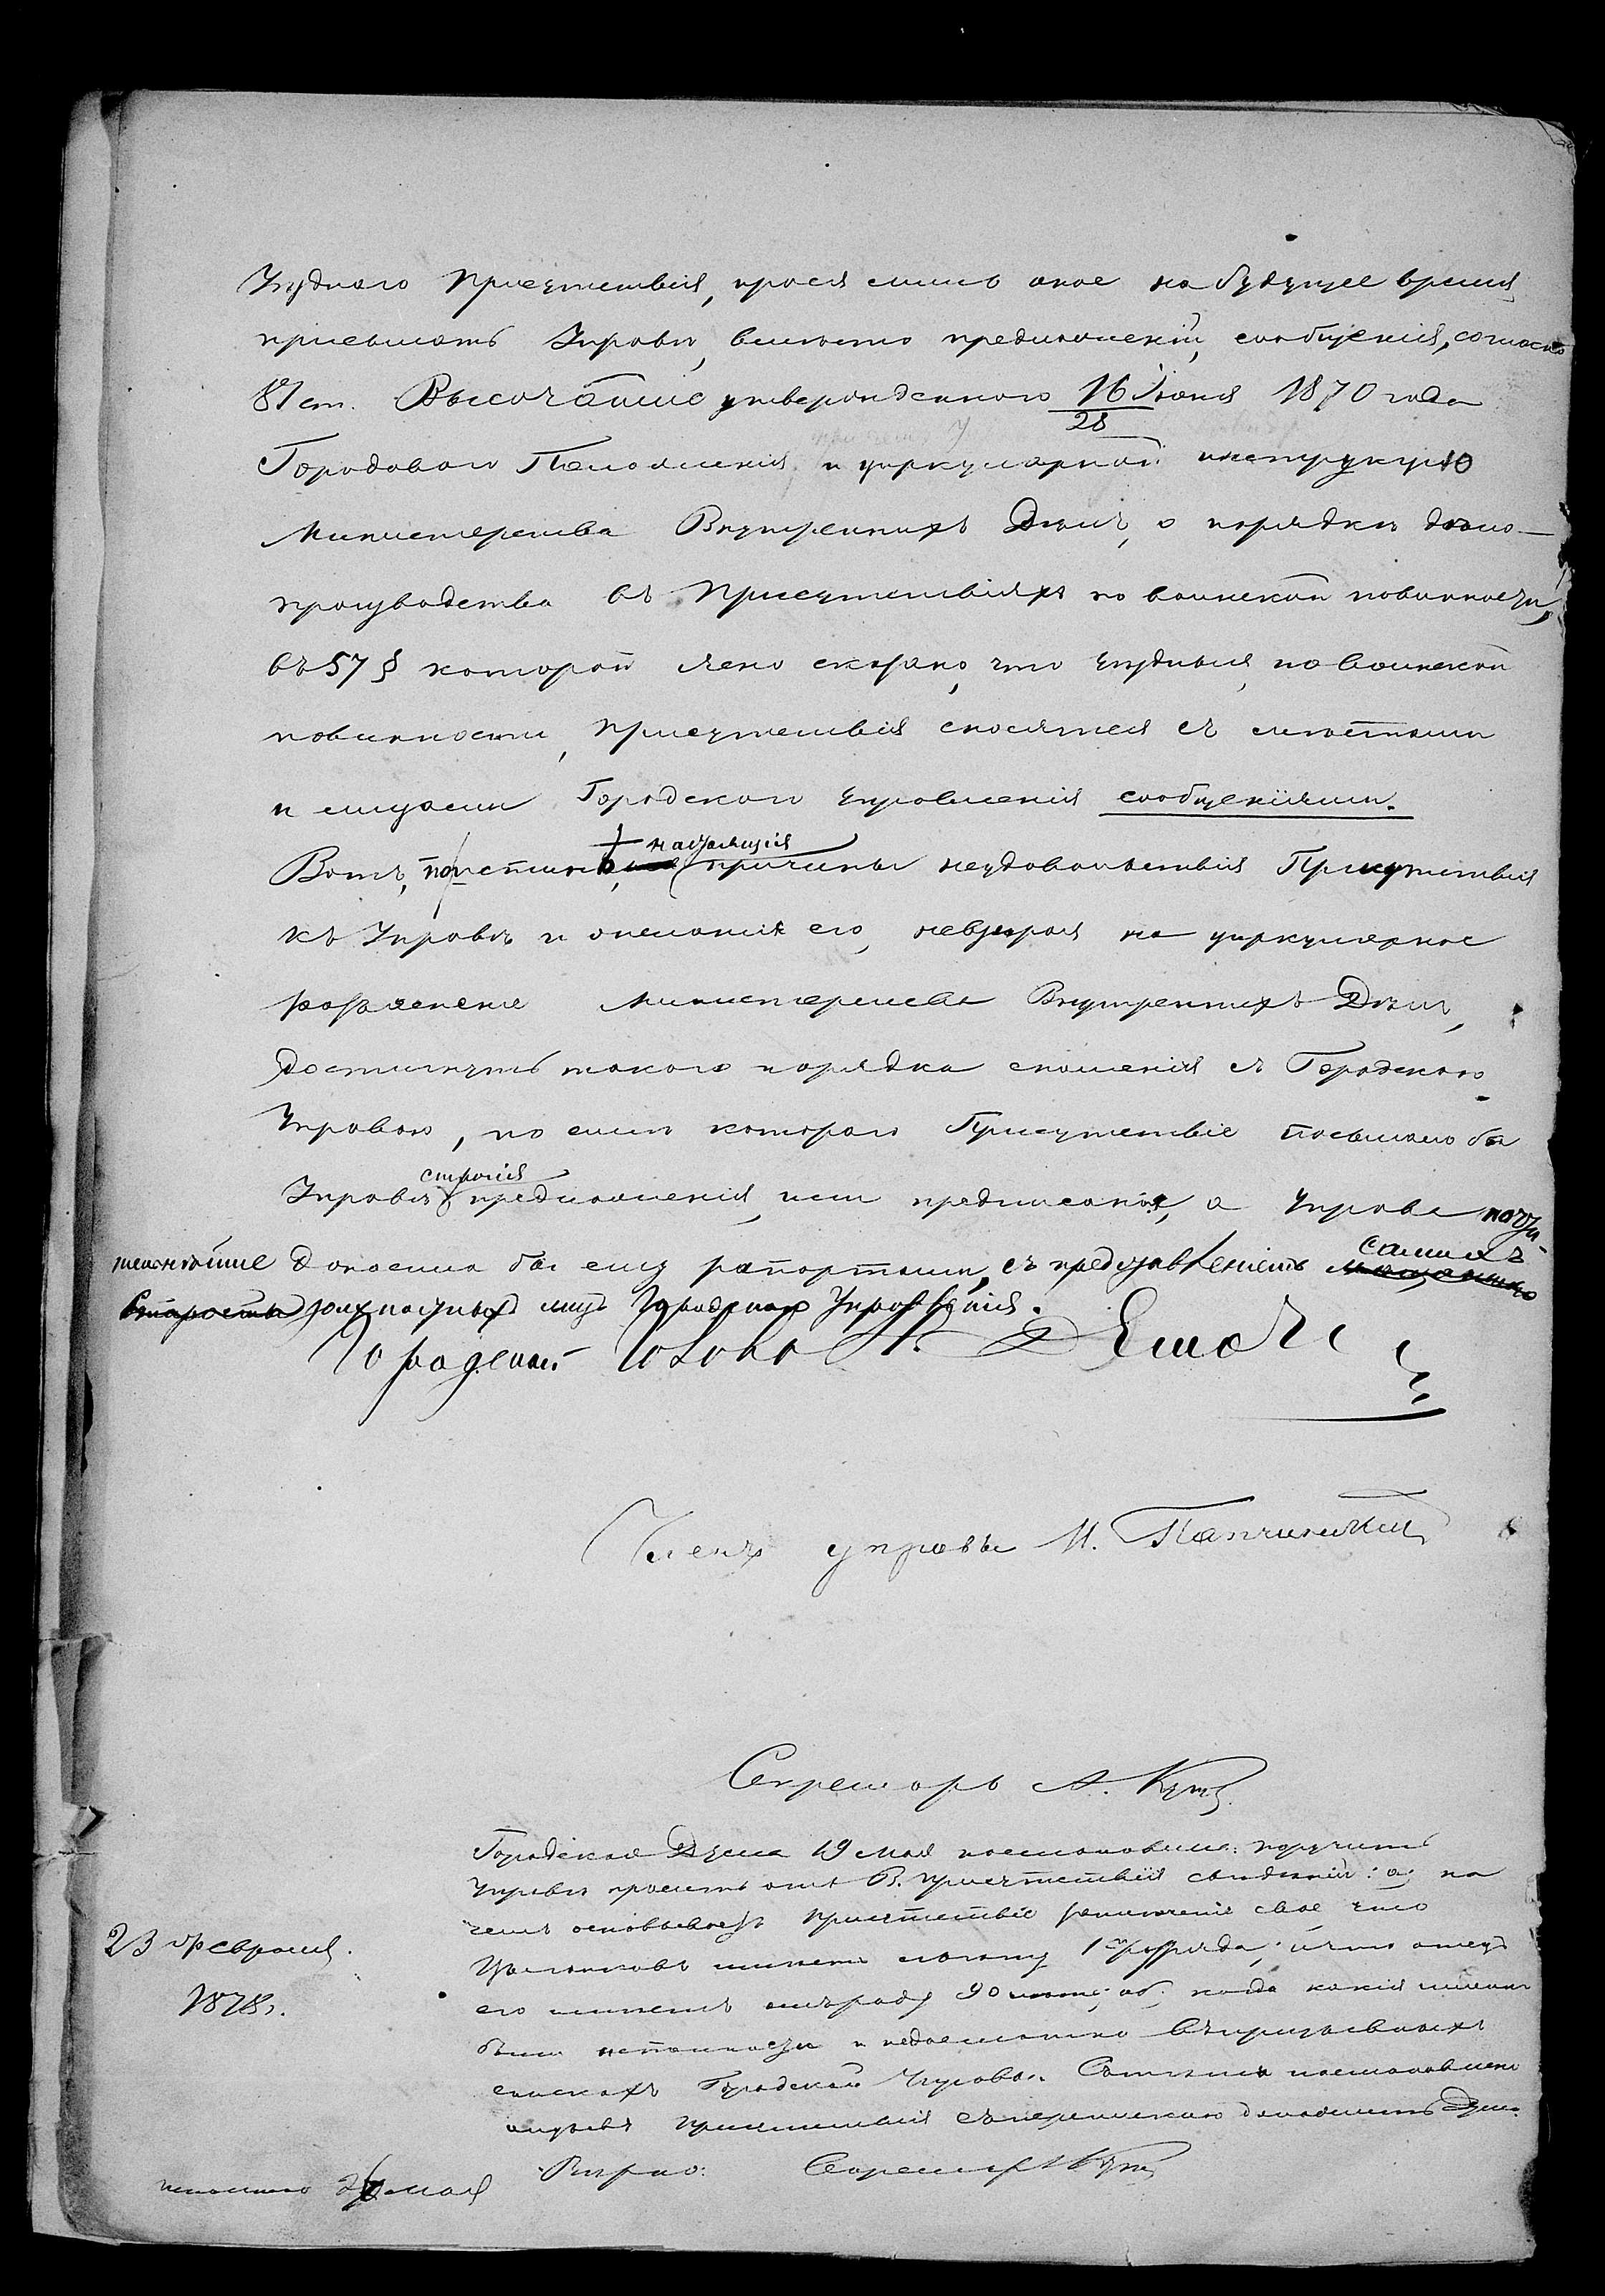 Уѣзднаго Присутствія, прося лишь оное на будущее время
присылать Управѣ, вмѣсто предложеній, сообщенія, согласно
81 ст. Высочайше утвержденнаго 16/28 Іюня 1870 года
Городоваго Положенія, и циркулярной инструкцію
Министерства Внутреннихъ Дѣлъ, о порядкѣ дѣло-
производства въ Присутствіяхъ по воинской повинности,
въ 57 § которой ясно сказано, что уѣздныя, по воинской
повинности, присутствія сносятся съ мѣстами
и лицами Городскаго управленія сообщеніями.
Вотъ, поистинѣ, настоящія причины неудовольствія Присутствія
къ Управѣ и желанія его, невзирая на циркулярное
разъясненіе Министерства Внутреннихъ Дѣлъ,
достигнуть такого порядка сношенія съ Городскою
Управою, по силѣ котораго Присутствіе посылало бы
Управѣ строгія предложенія, или предписанія, а Управа почти-
тельнѣйше доносила бы ему рапортами, съ предъявленіемъ самихъ
должностныхъ лицъ Городскаго Управленія.
Городской Голова
Членъ управы М.
Секретарь А.
Городская Дума 19 мая постановила: поручить
Управѣ просить отъ В. присутствія свѣдѣній: а, на
чемъ основываетъ присутствіе заключеніе свое, что
имѣетъ льготу 1го разряда, и что отецъ
его имѣетъ отъ роду 90 лѣтъ; б, когда какія именно
были неточности и недостатки въ призывныхъ
спискахъ Городской Управы. Самымъ постановленіемъ
отзывъ присутствія съ перепискою доложить Думѣ.
23 Февраля
1878 г.
Вѣрно: Секретарь
исполнено мая